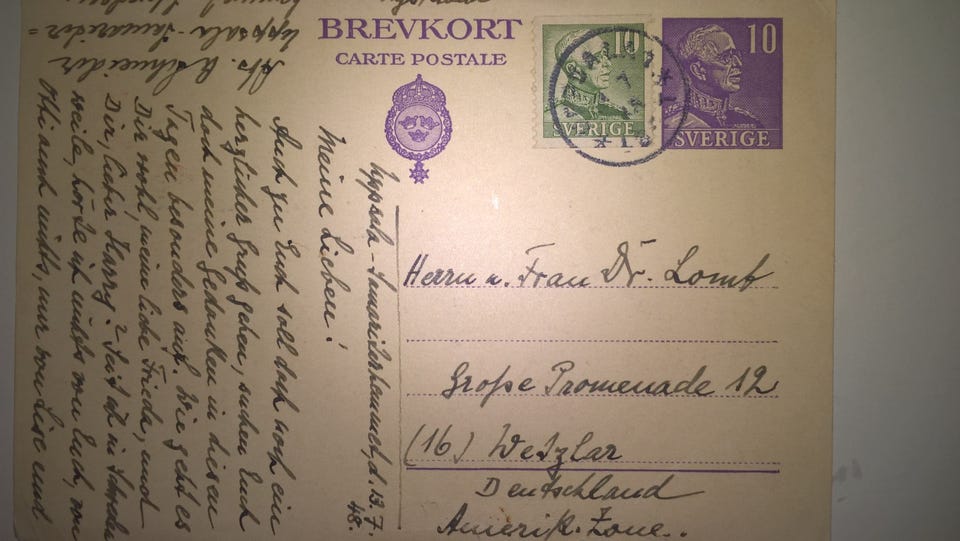 BREVKORT
CARTE POSTALE
10
SVERIGE
10
SVERIGE
Herrn u. Frau Dr. Lomb
Große Promenade 12
(16) Wetzlar
Deutschland
Amerik. Zone.
Uppsala-Samariterhemmet, d. 13.7.
48.
Meine Lieben!
Auch zu Euch soll doch noch ein
herzlicher Gruß gehen, suchen Euch
doch meine Gedanken in diesen
Tagen besonders auf. Wie geht es
Dir wohl, meine liebe Frieda, und
Dir, lieber Harry? Seit ich in
weile, hörte ich nichts von Euch, von
Otti auch nichts, nur von Lise und
Abs.
Uppsala